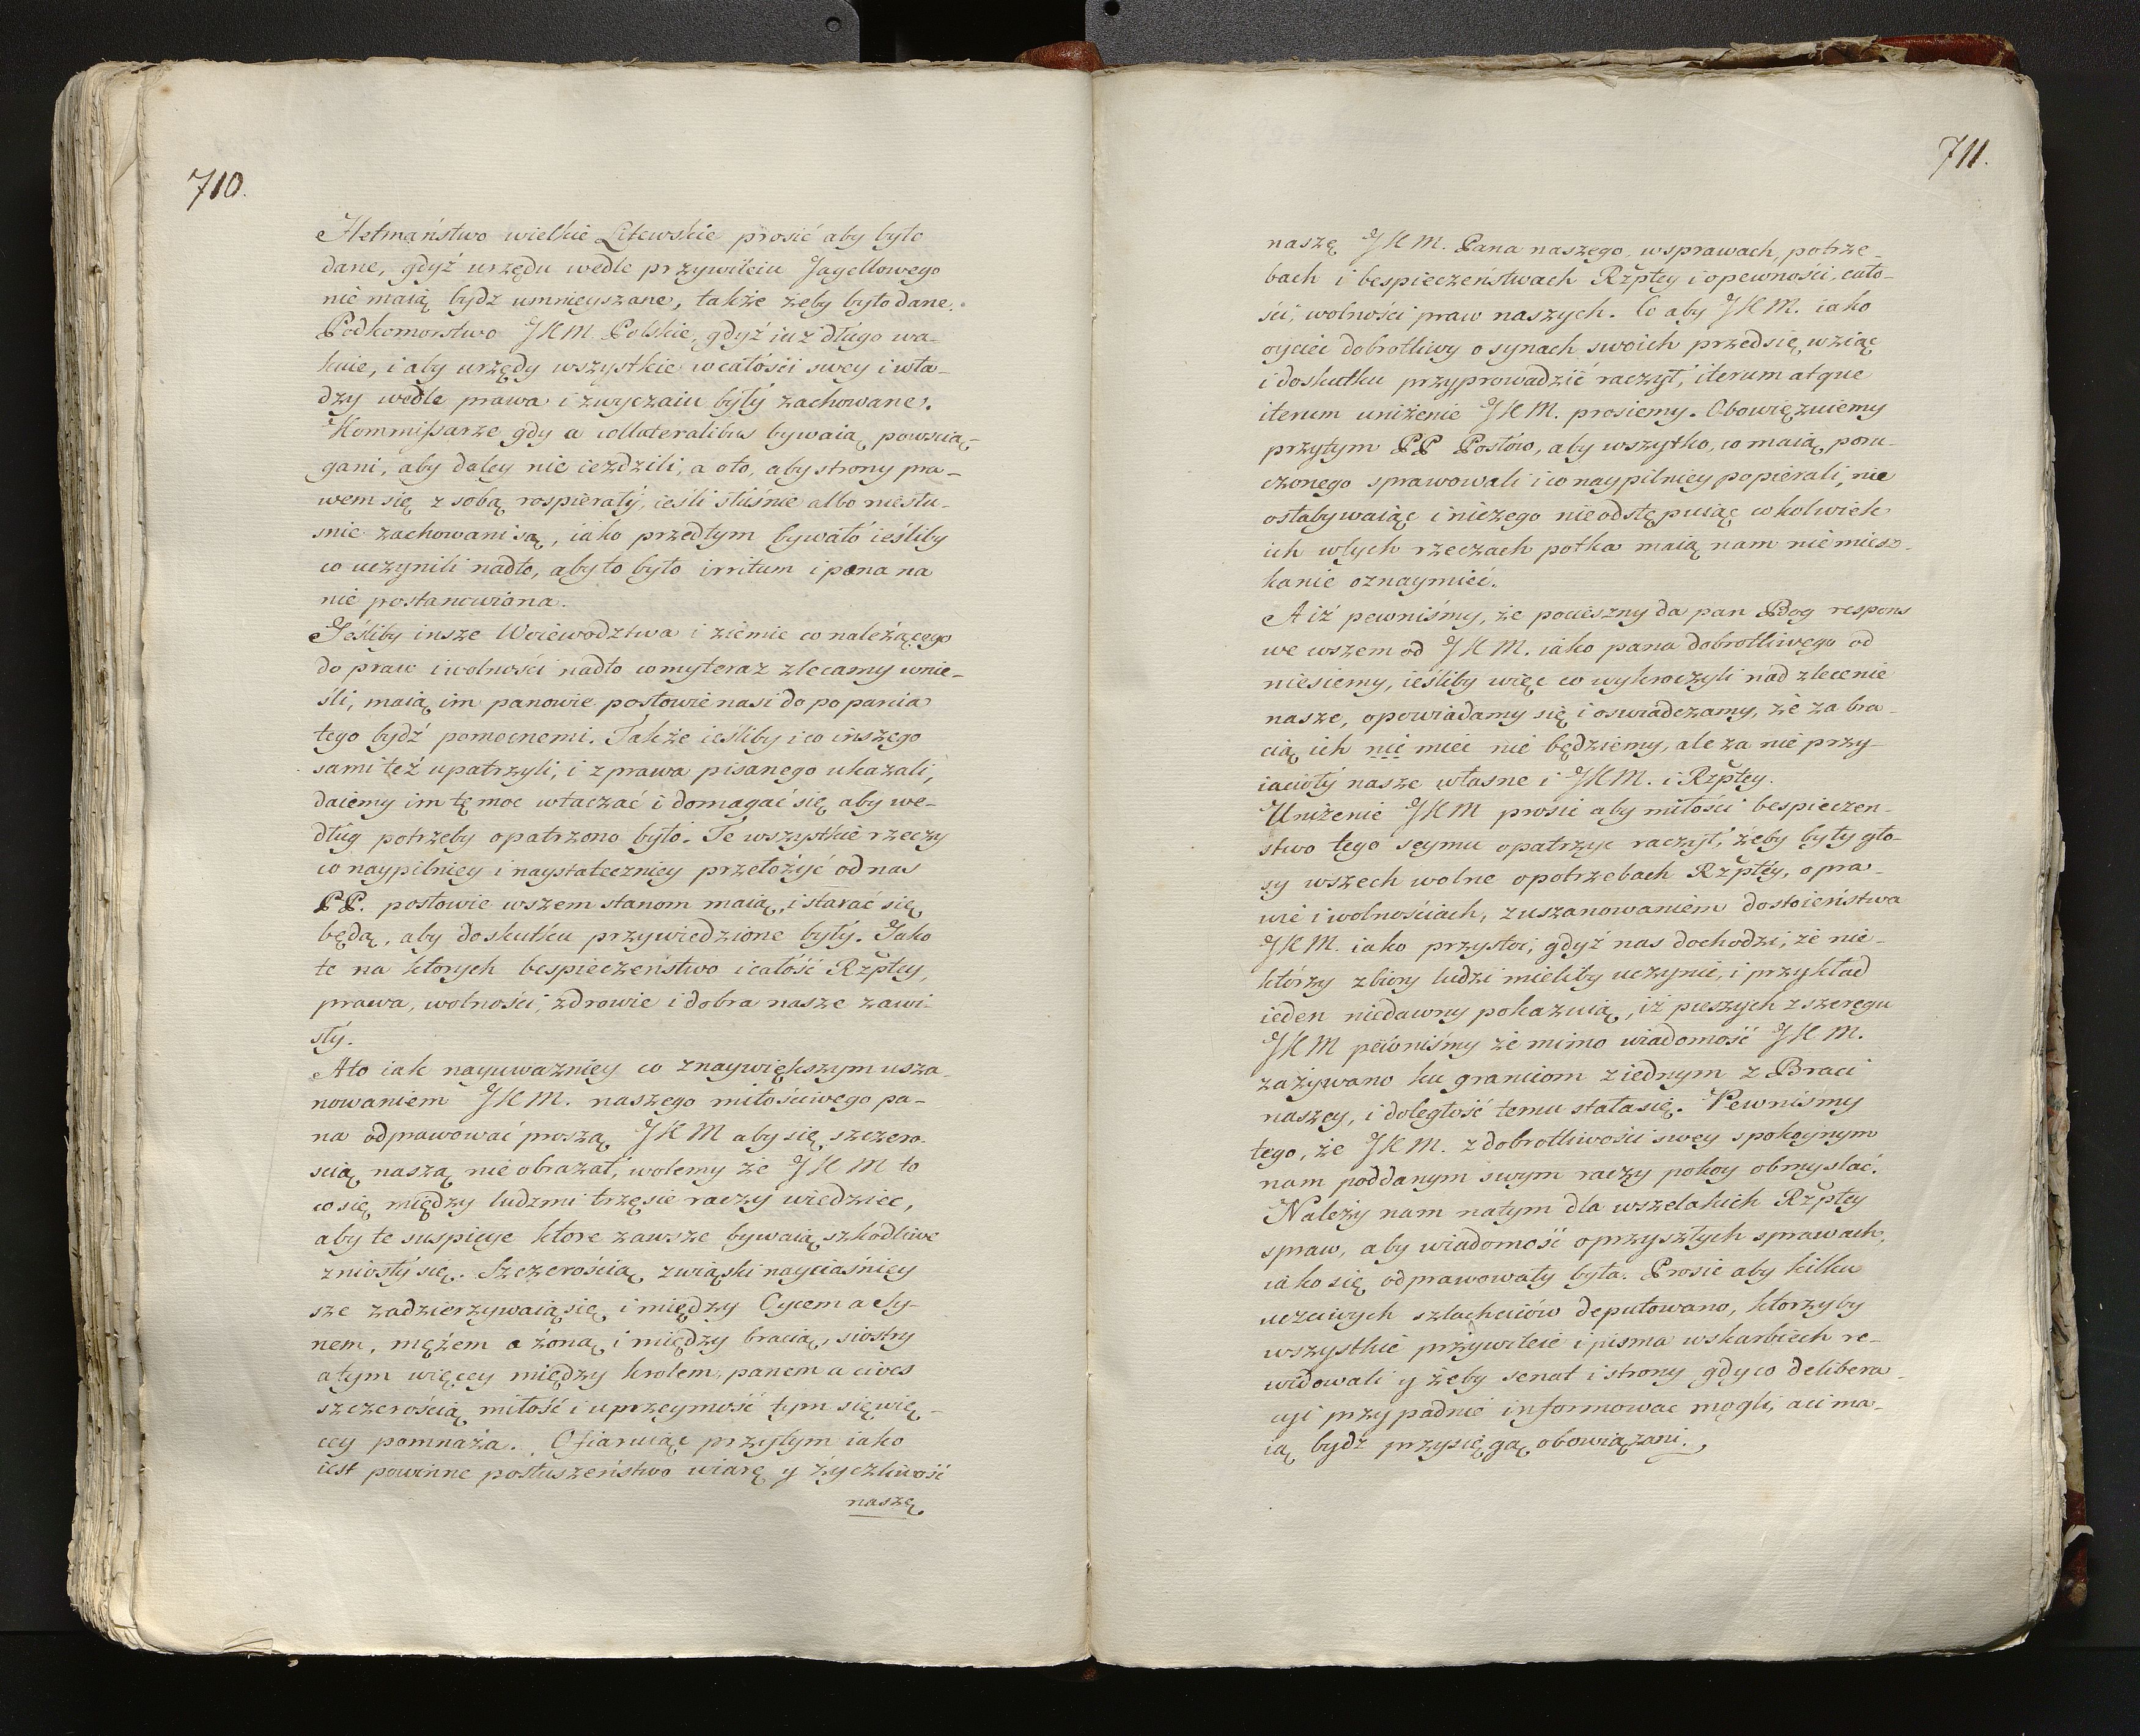 710.
Hetmaństwo wielkie Litewskie prosić aby było
dane, gdyż urzędu wedle przywileiu Jagellowego
nie maią bydz umnieyszane, także żeby było dane
Podkomorstwo JKM. Polskie, gdyż iuż długo wa-
kuie, i aby urzędy wszystkie w całości swey i wła-
dzy wedle prawa i zwyczaiu były zachowane.
Kommissarze gdy a collateralibus bywaią powscią-
gani, aby daley nie iezdzili, a oto, aby strony pra-
wem się z sobą rospierały, ieśli słusnie albo niesłu-
snie zachowani są, iako przedtym bywało ieśliby
co uczynili nadto, aby to było irritum i pena na
nie postanowiona.
Jeśliby insze Woiewodztwa i ziemie co należącego
do praw i wolności nadto co my teraz zlecamy wnie-
śli, maią im panowie posłowie nasi do po pania
tego bydź pomocnemi. Także ieśliby i co inszego
sami też upatrzyli, i z prawa pisanego ukazali,
daiemy im tę moc wtaczać i domagać się aby we-
dług potrzeby opatrzono było. Te wszystkie rzeczy
co naypilniey i naystateczniey przełożyć od nas
PP. posłowie wszem stanom maią, i starać się
będą, aby do skutku przywiedzione były. Jako
te na ktorych bespieczeństwo i całość Rzptey,
prawa, wolności, zdrowie i dobra nasze zawi-
sły.
A to iak nayuważniey co z naywiększym usza-
nowaniem JKM. naszego miłościwego pa-
na odprawować proszą JKM aby się szczero-
scią naszą nie obrażał, wolemy że JKM to
co się między ludzmi trzęsie raczy wiedziec,
aby te suspicye ktore zawsze bywaią szkodliwe
zniosły się. Szczerością związki nayciaśniey
sze zadzierzywaią się i między Oycem a Sy-
nem, mężem a żoną i między bracią, siostry
a tym więcey między krolem, panem a cives
szczerością miłość i uprzeymość tym się wię-
cey pomnaża. Ofiaruiąc przytym iako
iest powinne posłuszeństwo wiarę y życzliwość
naszę
711.
naszę JKM. Pana naszego, w sprawach, potrze-
bach i bespieczeństwach Rzptey i o pewności, cało-
ści, wolności praw naszych. Co aby JKM. iako
oyciec dobrotliwy o synach swoich przedsię wziąc
i do skutku przyprowadzić raczył, iterum atque
iterum uniżenie JKM. prosiemy. Obowięzuiemy
przytym PP Posłów, aby wszytko, co maią poru-
czonego sprawowali i co naypilniey popierali, nie
osłabywaiąc i niczego nie odstępuiąc cokolwiek
ich w tych rzeczach potka maią nam nie miesz-
kanie oznaymieć.
A iż pewniśmy, że pocieszny da pan Bog respons
we wszem od JKM. iako pana dobrotliwego od
niesiemy, ieśliby więc co wykroczyli nad zlecenie
nasze, opowiadamy się i oswiadczamy, że za bra-
cią ich nie miec nie będziemy, ale za nie przy-
iacioły nasze własne i JKM. i Rzptey.
Uniżenie JKM prosic aby miłości bespieczen-
stwo tego seymu opatrzyc raczył, żeby były gło-
sy wszech wolne o potrzebach Rzptey, o pra-
wie i wolnościach, z uszanowaniem dostoieństwa
JKM. iako przystoi, gdyż nas dochodzi, że nie-
którzy zbiory ludzi mieliby uczynic, i przykład
ieden niedawny pokazuią, iż pieszych z szeregu
JKM pewniśmy że mimo wiadomość JKM.
zażywano ku graniom z iednym z Braci
naszey, i doległość temu stała się. Pewniśmy
tego, że JKM. z dobrotliwości swey spokoynym
nam poddanym swym raczy pokoy obmyslać.
Należy nam na tym dla wszelakich Rzptey
spraw, aby wiadomość o przyszłych sprawach,
iako się odprawowały była. Prosic aby kilku
uczciwych szlachciców deputowano, ktorzyby
wszystkie przywileie i pisma w skarbiech re-
widowali y żeby senat i strony gdy co delibera-
cyi przypadnie informowac mogli, a ci ma-
ią bydź przysięgą obowiązani.